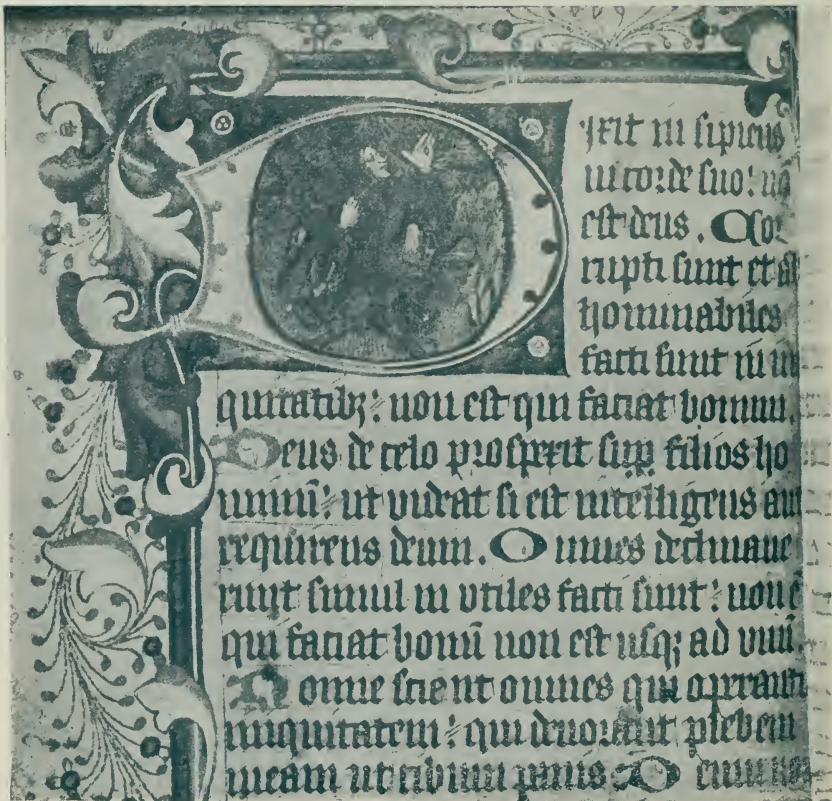 Dixit insipiens
in corde suo: no
est deus. Cor
rupti sunt et ab
hominabiles
facti sunt in in
iquitatibꝫ: non est qui faciat bonum.
Deus de celo prospexit suꝑ filios ho
minū: ut videat si est intelligens aut
requirens deum. Omnes declinaue
runt simul in vtiles facti sunt: non e
qui faciat bonū non est usqꝫ ad vnū
Nonne scient omnes qui operanti
iniquitatem: qui deuorant plebem
meam ut cibum panis Deum